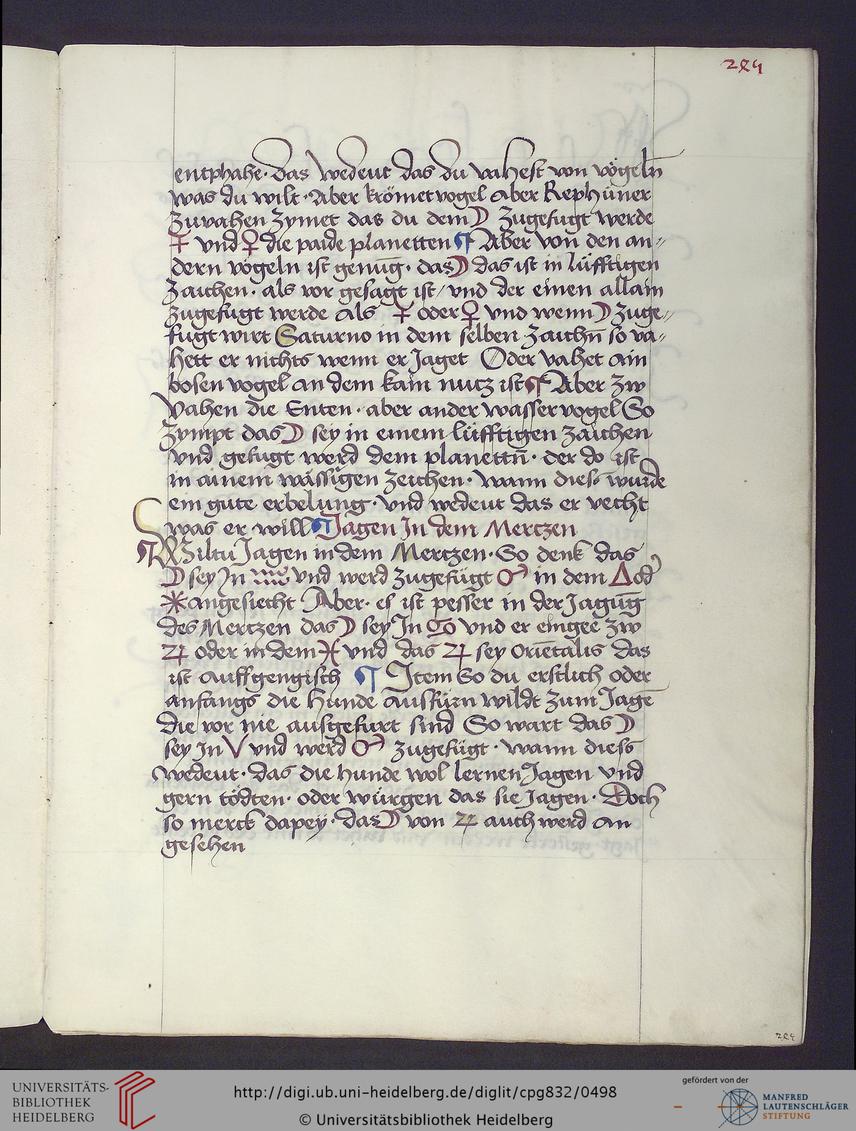 284
entphahe · das wedeut das du vahest von vögeln̄
was du wilt · Aber krömetvogel aber Rephüner
Zuvahen Zymet das du dem ☽ Zugefugt werde
♀ die paide planetten ¶ Aber von den an=
dern vogeln ist genūg · das ☽ das ist in lüfftigen
Zaichen · als vor gesagt ist / und der einen allain
Zugefugt werde als oder ♀ und wenn ☽ Zuge=
fugt wirt Saturno in dem selben Zaichn̄ so va=
hett er nichts wenn er Jaget Oder vahet ain
bosen vogel an dem kain nutz ist ¶ Aber Zw
vahen die Enten · aber ander wasservogel So
Zympt das ☽ sey in einem lüfftigen Zaichen
und gefugt werd dem planettn̄ · der do ist
in ainem wässrigen Zeichen · wann diess wurde
ein gute erbelung · und wedeut das er vecht
was er will ¶ Jagen In dem Mertzen
¶ Wiltu Jagen in dem Mertzen · So denk das
☽ sey Jn ♒ und werd Zugefügt ♂ in dem △ od
✳ angesiecht Aber · es ist pesser in der Jagūg
des Mertzen das ☽ sey Jn ♋ und er eingee Zw
♃ oder in dem ♓ und das ♃ sey oriētalis das
ist auffgengisch ¶ Item So du erstlich oder
anfangs die Hunde ausfürn wildt Zum Jagē
die vor nie ausgefurt sind So wart das ☽
sey Jn ♈ und werd ♂ Zugefügt · wann diess
wedeut · das die hunde wol lernen Jagen und
gern tödten · oder würgen das sie Jagen · Doch
so merck dapey · das ☽ von ♃ auch werd an
gesehen
284
UNIVERSITÄTS-
BIBLIOTHEK
HEIDELBERG
http://digi.ub.uni-heidelberg.de/diglit/cpg832/0498
© Universitätsbibliothek Heidelberg
gefördert von der
MANFRED
LAUTENSCHLÄGER
STIFTUNG